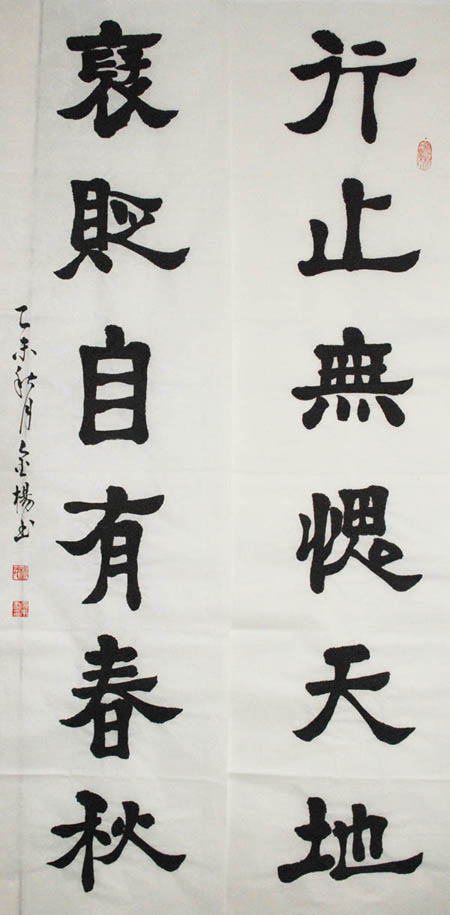 行止無愧天地
褒貶自有春秋
乙未秋月金楊书